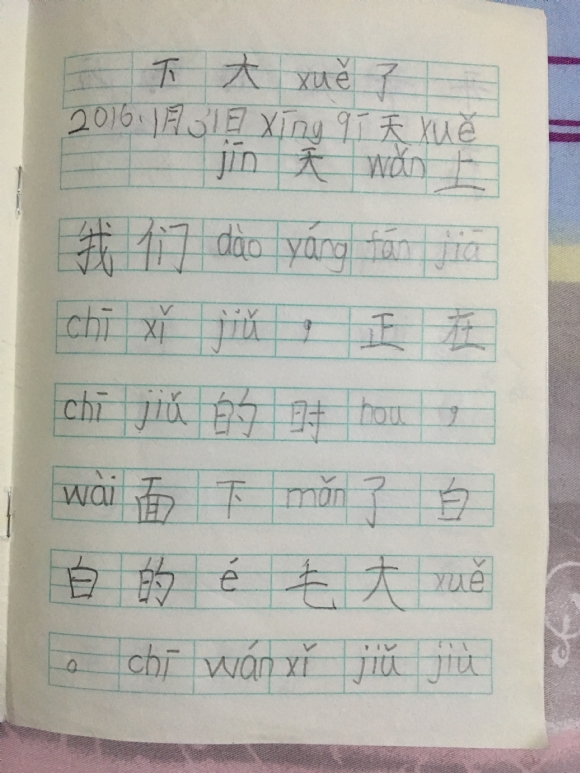 下大xuě了
2016.1月31日xīng qī天xuě
jīn天wǎn上
我们dào yáng fán jiā
chī xǐ jiǔ，正在
chī jiǔ的时hou，
wài面下mǎn了白
白的é毛大xuě
。chī wán xǐ jiǔ jiù